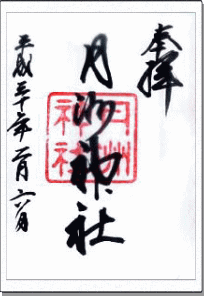 奉拝
月洲神社
月州神社
平成三十年二月六日